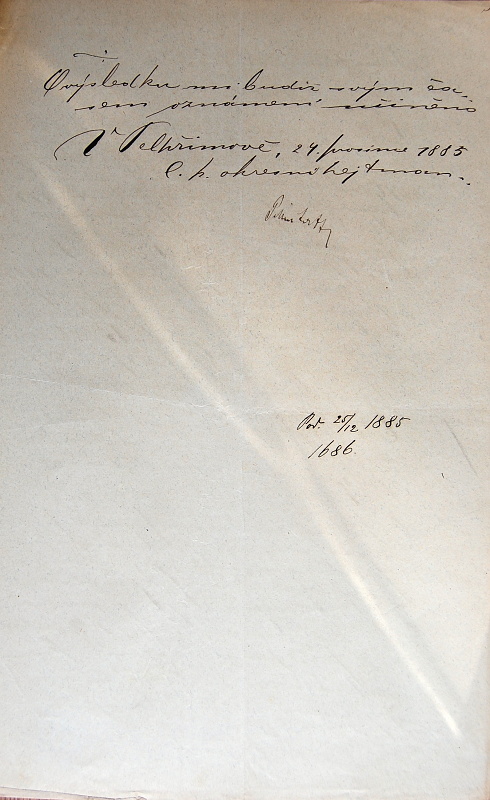 O výsledku mi budiž svým ča-
sem oznámení učiněno
V Pelhřimově, 24. prosince 1885
C. k. okresní hejtman.
Pod. 25/12 1885
1686.